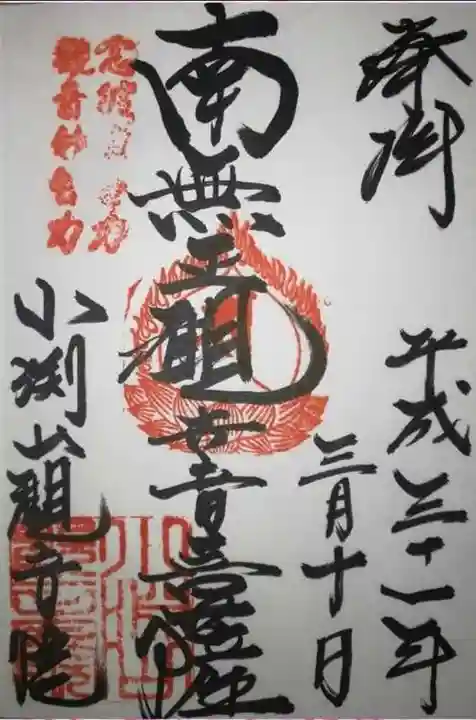 奉拝
平成三十一年
三月十日
南無正観世音菩薩
念彼觀音力
觀音妙智力
小渕山観音院